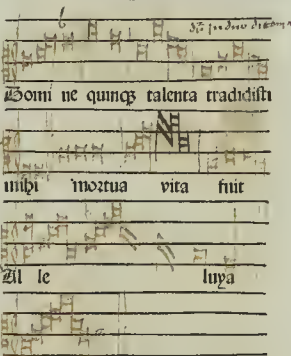 Domi ne quinqz talenta tradidisti
mihi mortua vita fuit
Al le luya